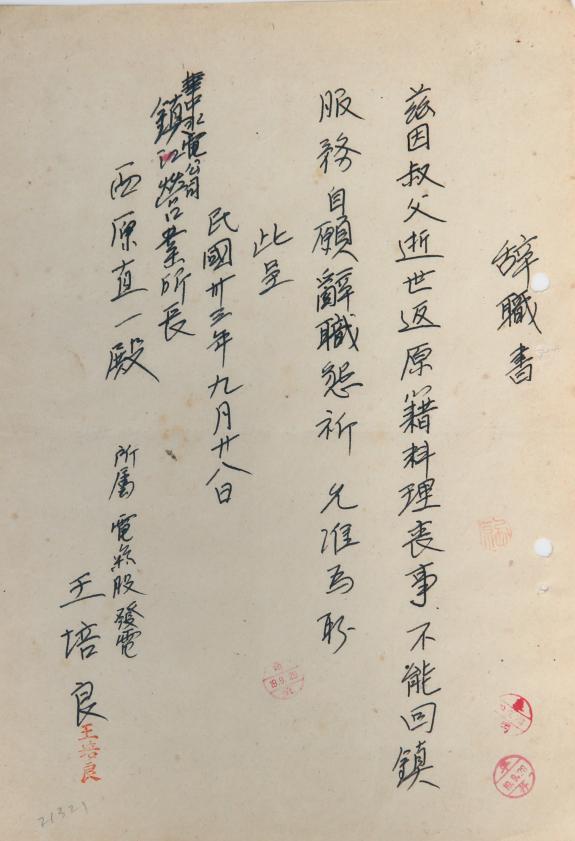 辞職書
茲因叔父逝世返原籍料理喪事不能回鎮
服務自願辭職懇祈 允准為盼
此呈
民國卅三年九月廿八日
華中水電公司
鎮江營業所長
西原直一殿
所属 電氣股發電
王培良
王培良
19.9.29
19.9.29
21321